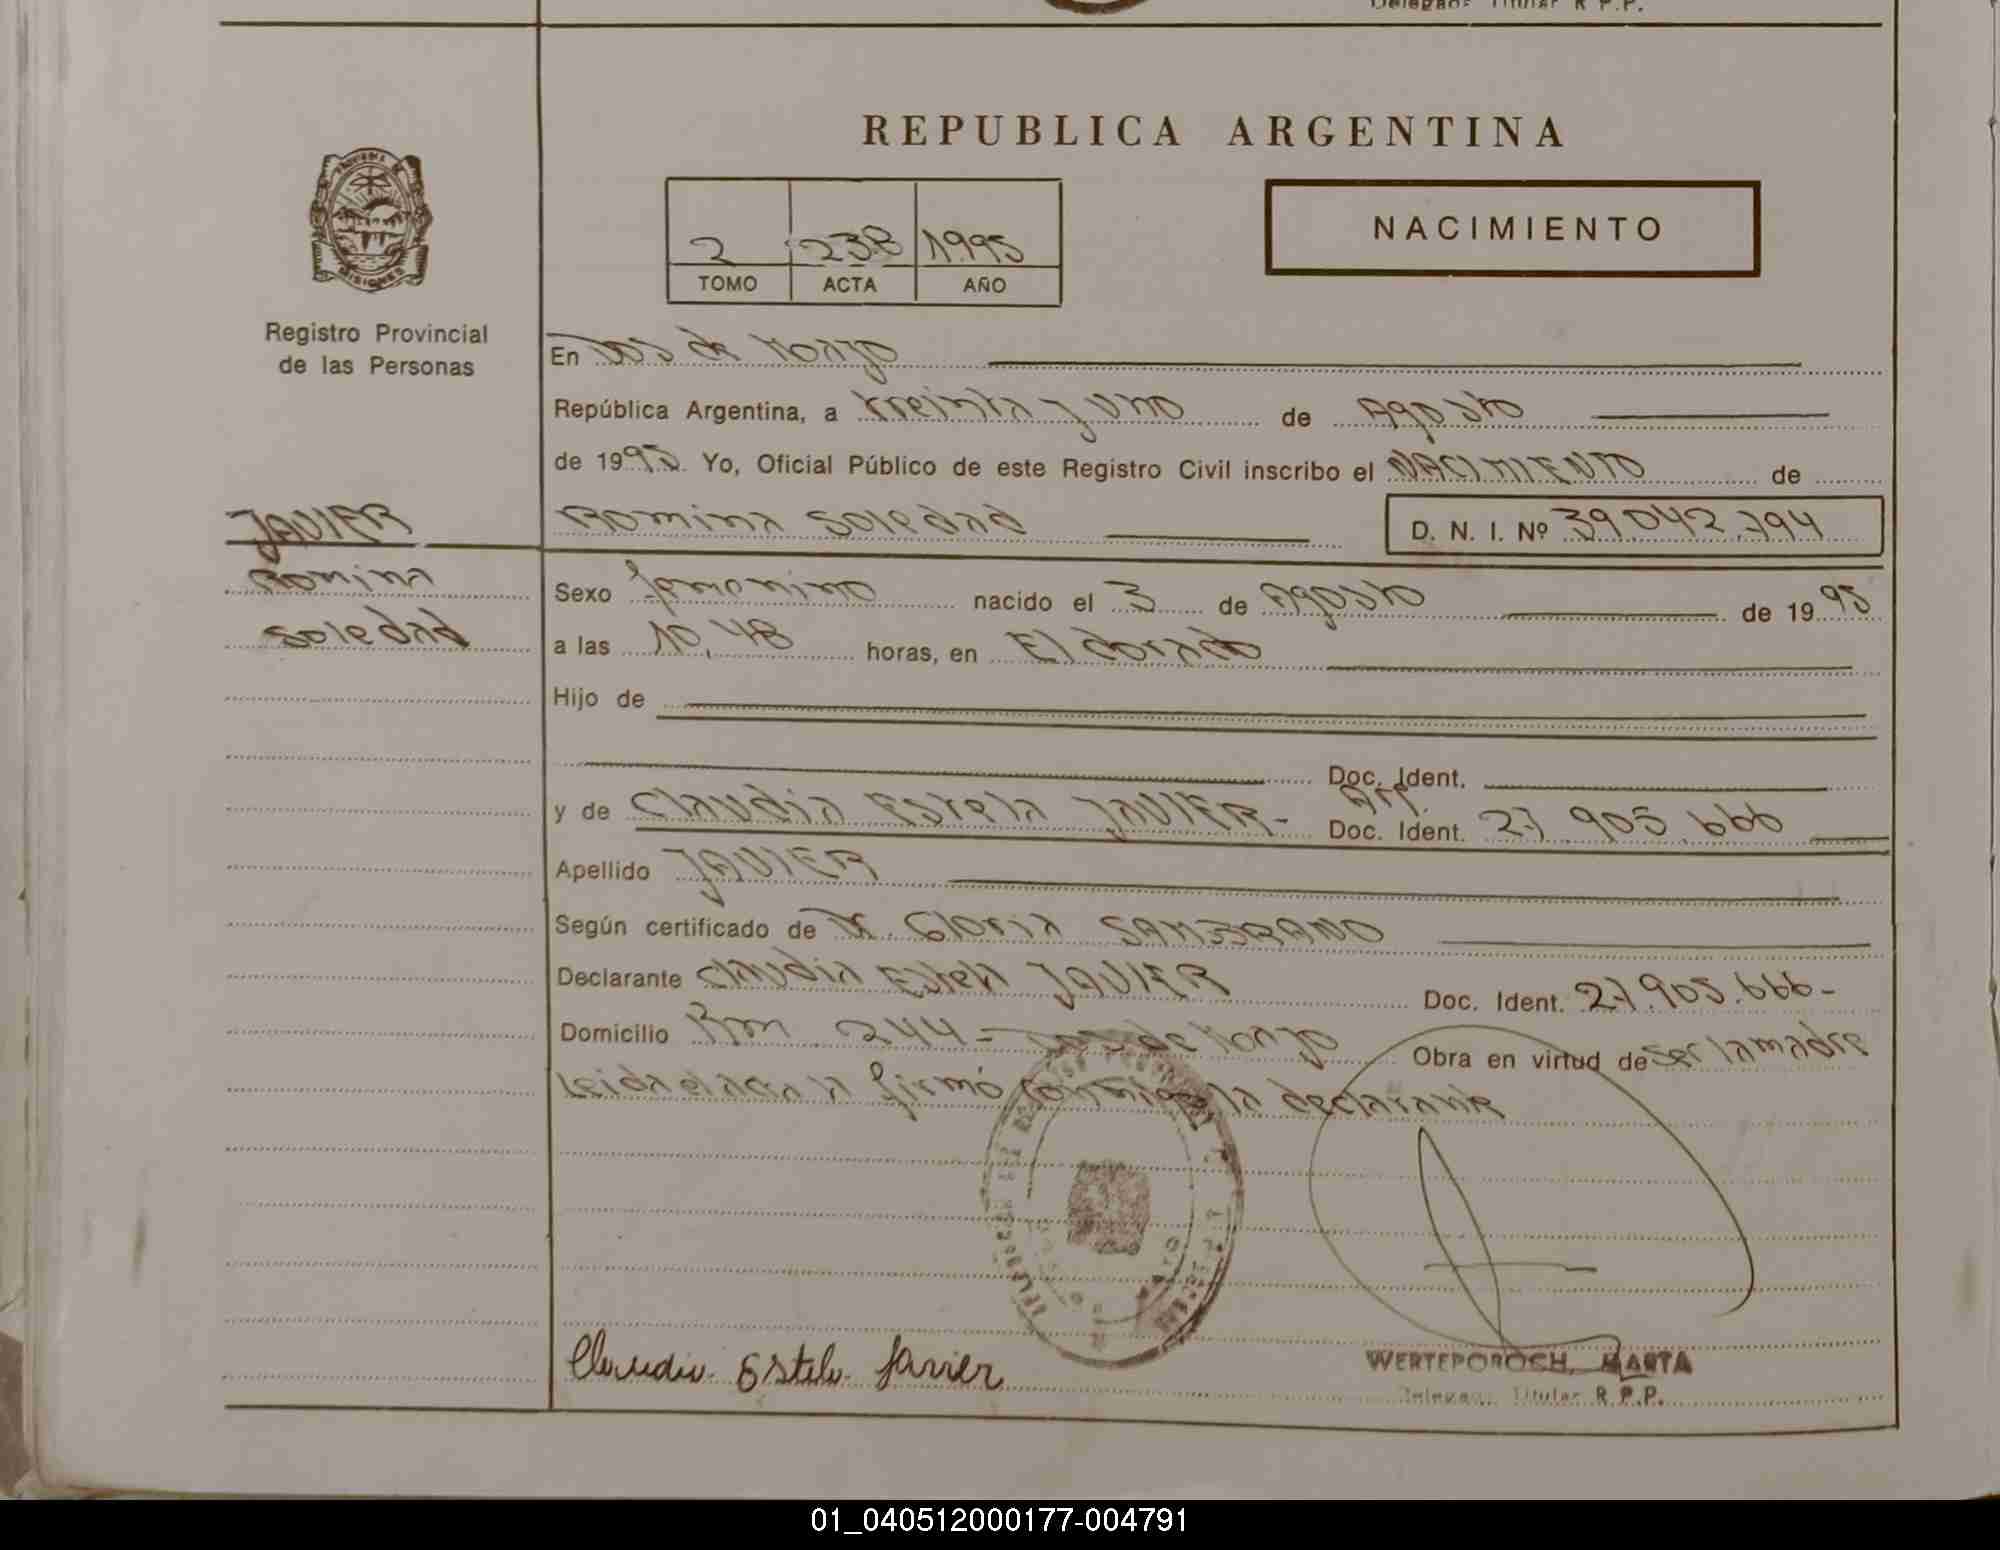 Delegado Titular R.P.P.
REPUBLICA ARGENTINA
NACIMIENTO
2 238 1995
TOMO ACTA AÑO
MISIONES
Registro Provincial
de las Personas
En Dos de Mayo
República Argentina, a treinta y uno de Agosto
de 1995. Yo, Oficial Público de este Registro Civil inscribo el NACIMIENTO de
JAVIER
Romina Soledad D. N. I. Nº 39.042.794
Romina
Soledad
Sexo femenino nacido el 3 de Agosto de 1995
a las 10,48 horas, en Eldorado
Hijo de
Doc. Ident.
y de Claudia Estela JAVIER- Arg. Doc. Ident. 27.905.666
Apellido JAVIER
Según certificado de Dr. Gloria SAMBRANO
Declarante Claudia Estela JAVIER Doc. Ident. 27.905.666-
Domicilio Km 244 - Dos de Mayo Obra en virtud de ser la madre
Leida el acta la firmó conmigo la declarante
Claudia Estela Javier
WERTEPOROCH, MARTA
Delegado Titular R.P.P.
01_040512000177-004791